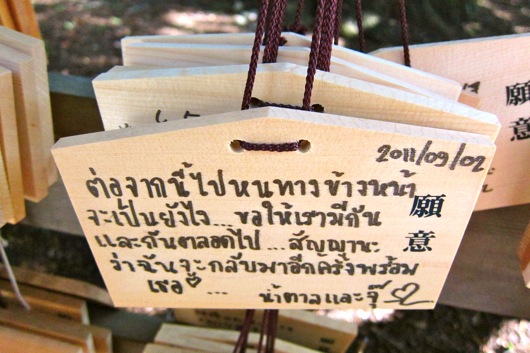 2011/09/02
ต่อจากนี้ไปหนทางข้างหน้า
จะเป็นยังไง... ขอให้เรามีกัน
และกันตลอดไป ...สัญญานะ
ว่าฉันจะกลับมาอีกครั้งพร้อม
เธอ ...
น้ำตาลและจุ๊
願意
願意